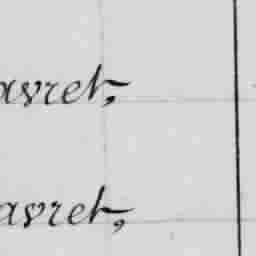 avret,
avret,